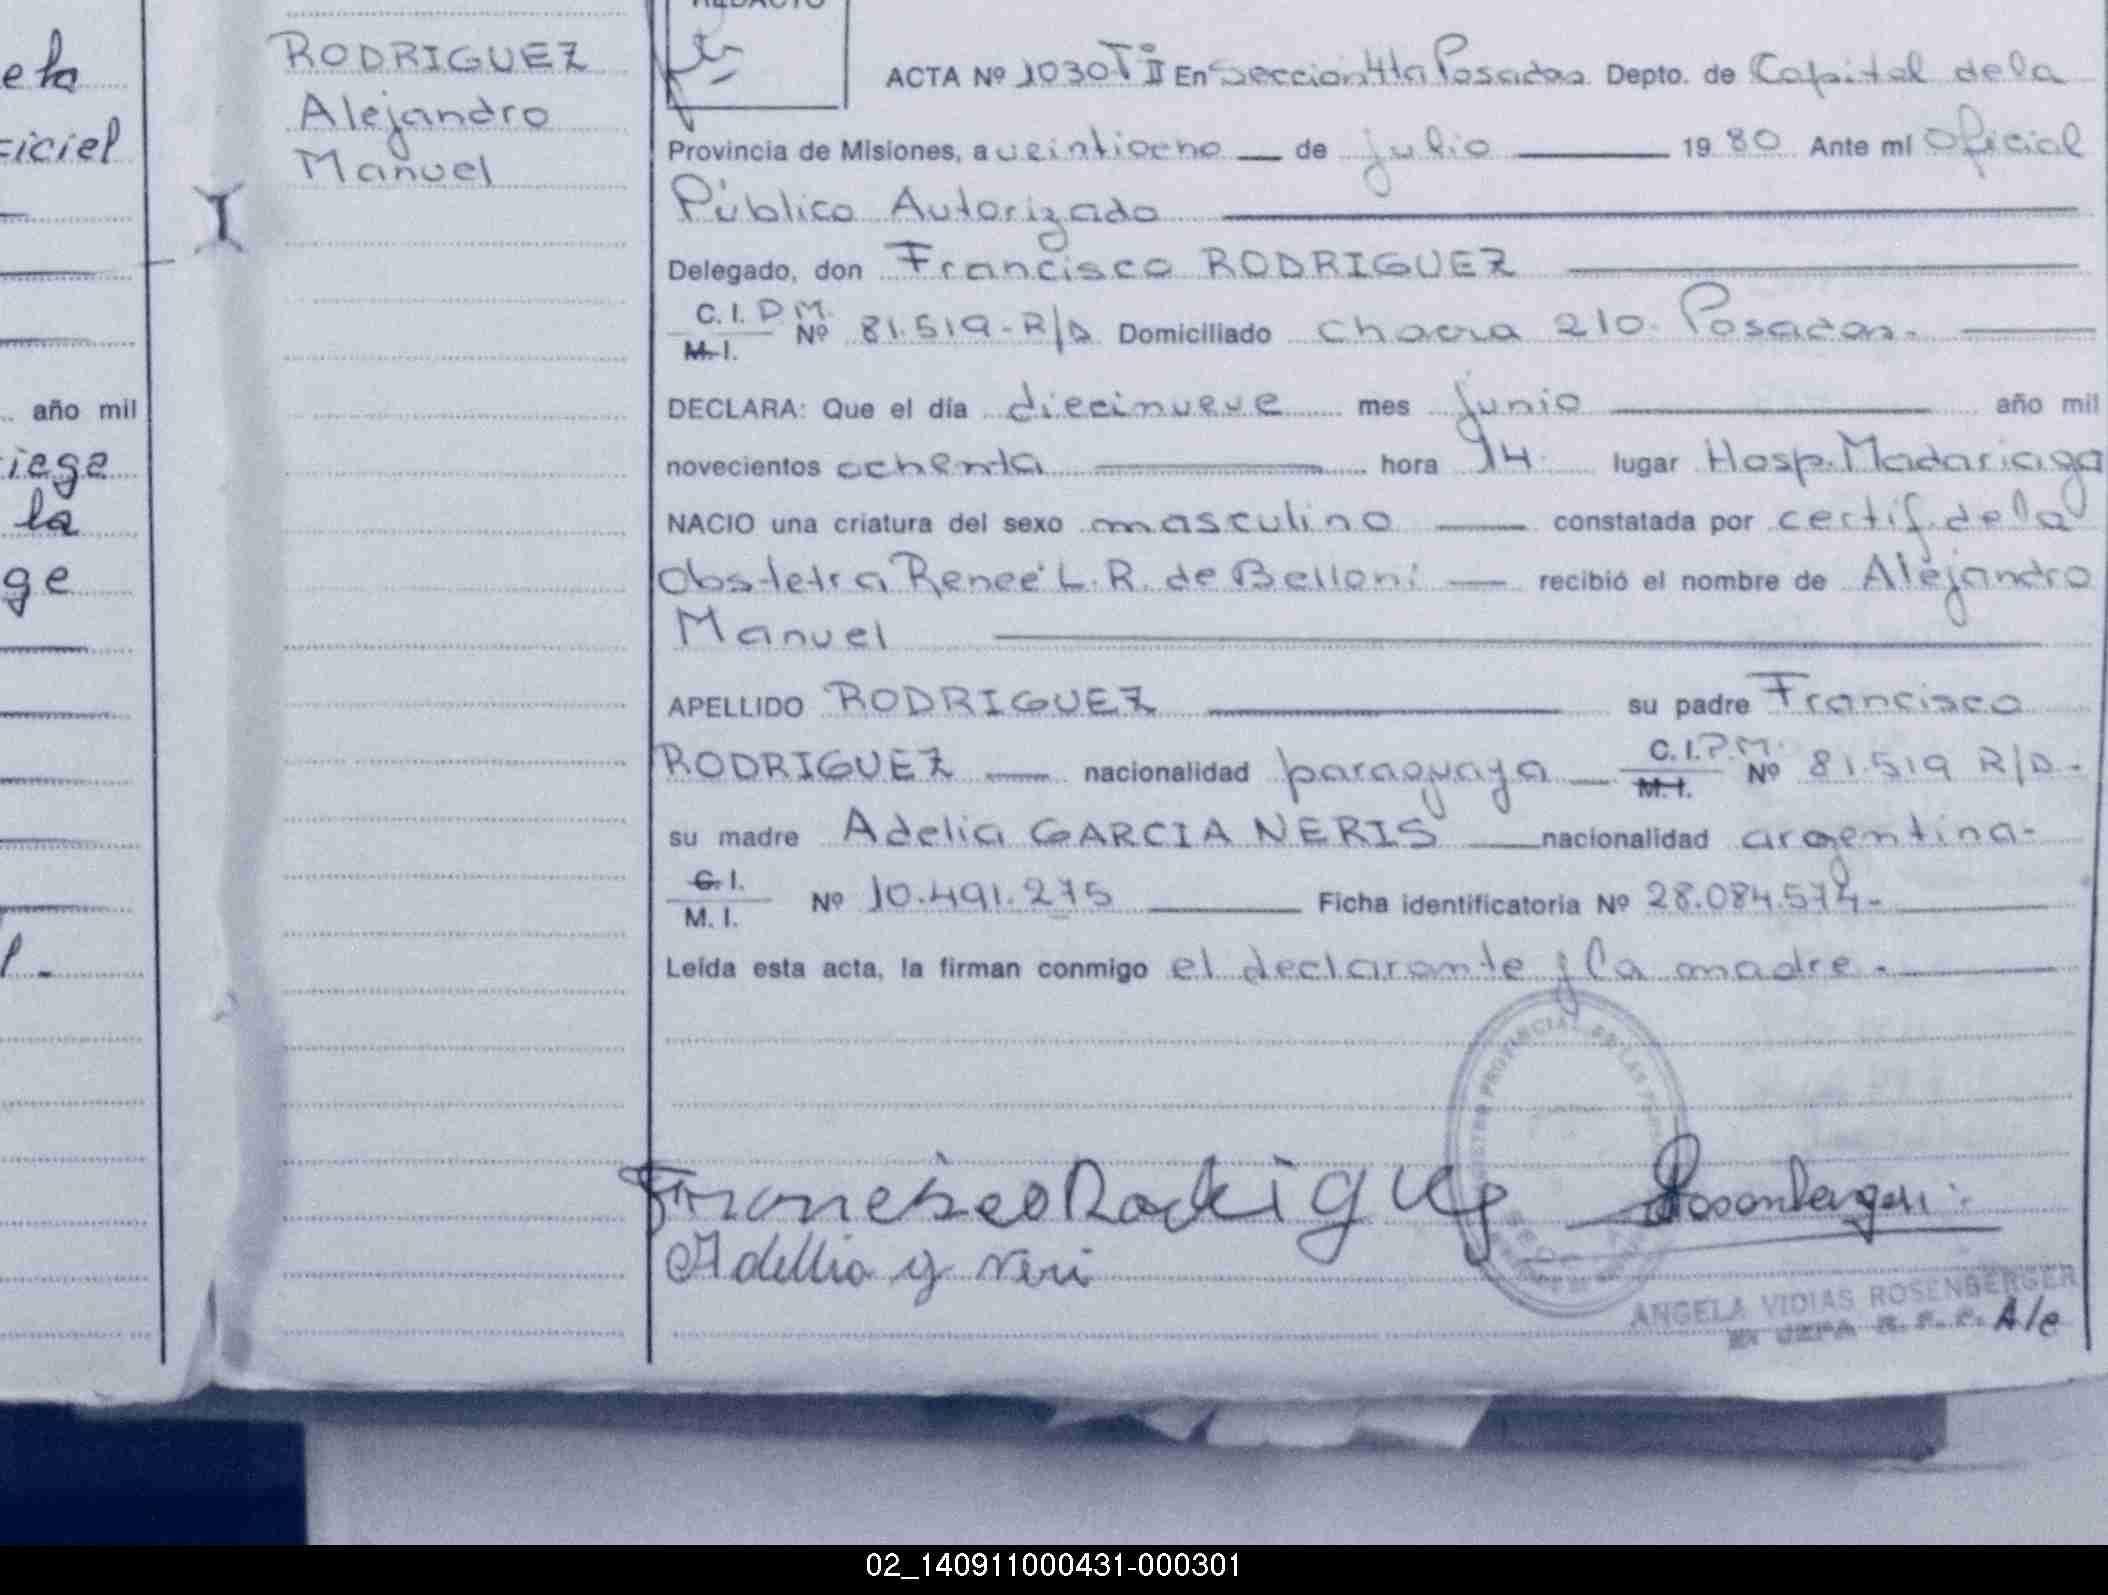 e la
ficiel
año mil
iege
la
ge
l.-
RODRIGUEZ
Alejandro
Manuel
REDACTO
ACTA Nº 1030 Tº II En Seccion 4ta Posadas. Depto. de Capital de la
Provincia de Misiones, a veintiocho de julio 1980 Ante mi Oficial
Público Autorizado
Delegado, don Francisco RODRIGUEZ
C. I. P M.
M. I. Nº 81.519-R/D Domiciliado chacra 210. Posadas.
DECLARA: Que el día diecinueve mes junio año mil
novecientos ochenta hora 14 lugar Hosp. Madariaga
NACIO una criatura del sexo masculino constatada por certif. de la
Obstetra Reneé L. R. de Belloni recibió el nombre de Alejandro
Manuel
APELLIDO RODRIGUEZ su padre Francisco
RODRIGUEZ nacionalidad paraguaya C. I. P. M. M. I. Nº 81.519 R/D.
su madre Adelia GARCIA NERIS nacionalidad argentina-
C. I.
M. I. Nº 10.491.275 Ficha identificatoria Nº 28.084.574-
Leída esta acta, la firman conmigo el declarante y la madre.
Francisco Rodriguez
Adellia g neri
ANGELA VIDIAS ROSENBERGER
A/c
02_140911000431-000301